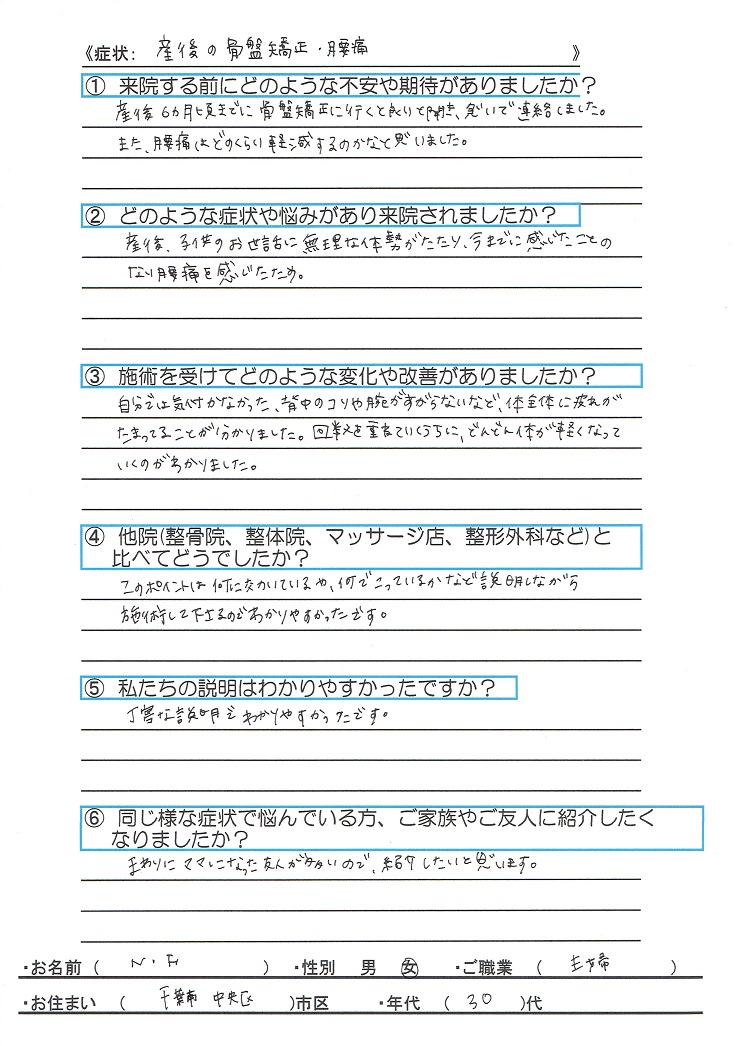 《症状: 産後の骨盤矯正・腰痛 》
① 来院する前にどのような不安や期待がありましたか？
産後6カ月頃までに骨盤矯正に行くと良いと聞き、急いで連絡しました。
また、腰痛はどのくらい軽減するのかなと思いました。
② どのような症状や悩みがあり来院されましたか？
産後、子供のお世話に無理な体勢がたたり、今までに感じたことの
ない腰痛を感じたため。
③ 施術を受けてどのような変化や改善がありましたか？
自分では気付かなかった、背中のコリや腕があがらないなど、体全体に疲れが
たまってることが分かりました。回数を重ねていくうちに、どんどん体が軽くなって
いくのがわかりました。
④ 他院(整骨院、整体院、マッサージ店、整形外科など)と
比べてどうでしたか？
このポイントは何に効いているや、何でこっているかなど説明しながら
施術して下さるのでわかりやすかったです。
⑤ 私たちの説明はわかりやすかったですか？
丁寧な説明でわかりやすかったです。
⑥ 同じ様な症状で悩んでいる方、ご家族やご友人に紹介したく
なりましたか？
まわりにママになった友人が多いので、紹介したいと思います。
・お名前 ( N.F ) ・性別 男 女 ・ご職業 ( 主婦 )
・お住まい ( 千葉市 中央区 )市区 ・年代 ( 30 )代